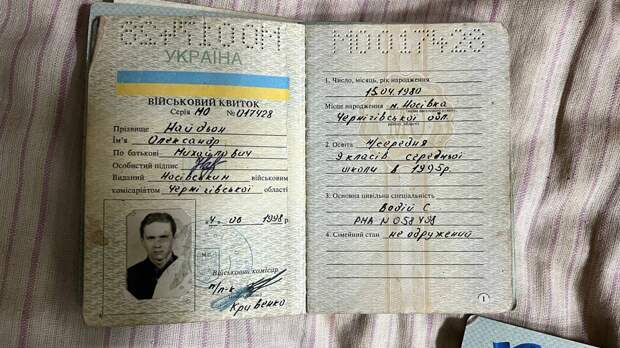 УКРАЇНА
ВІЙСЬКОВИЙ КВИТОК
Серія МО № 017428
Прізвище Найдьон
Ім'я Олександр
По батькові Михайлович
Особистий підпис
Виданий Носівським військовим
комісаріатом Чернігівської області
4 06 1998 р.
Військовий комісар
п/п-к
Кривенко
МО017428
1. Число, місяць, рік народження
15.04.1980
Місце народження м. Носівка
Чернігівської обл.
2. Освіта н/середня
9 класів середньої
школи в 1995р.
3. Основна цивільна спеціальність
Водій С
РМА N 058498
4. Сімейний стан не одружений
1